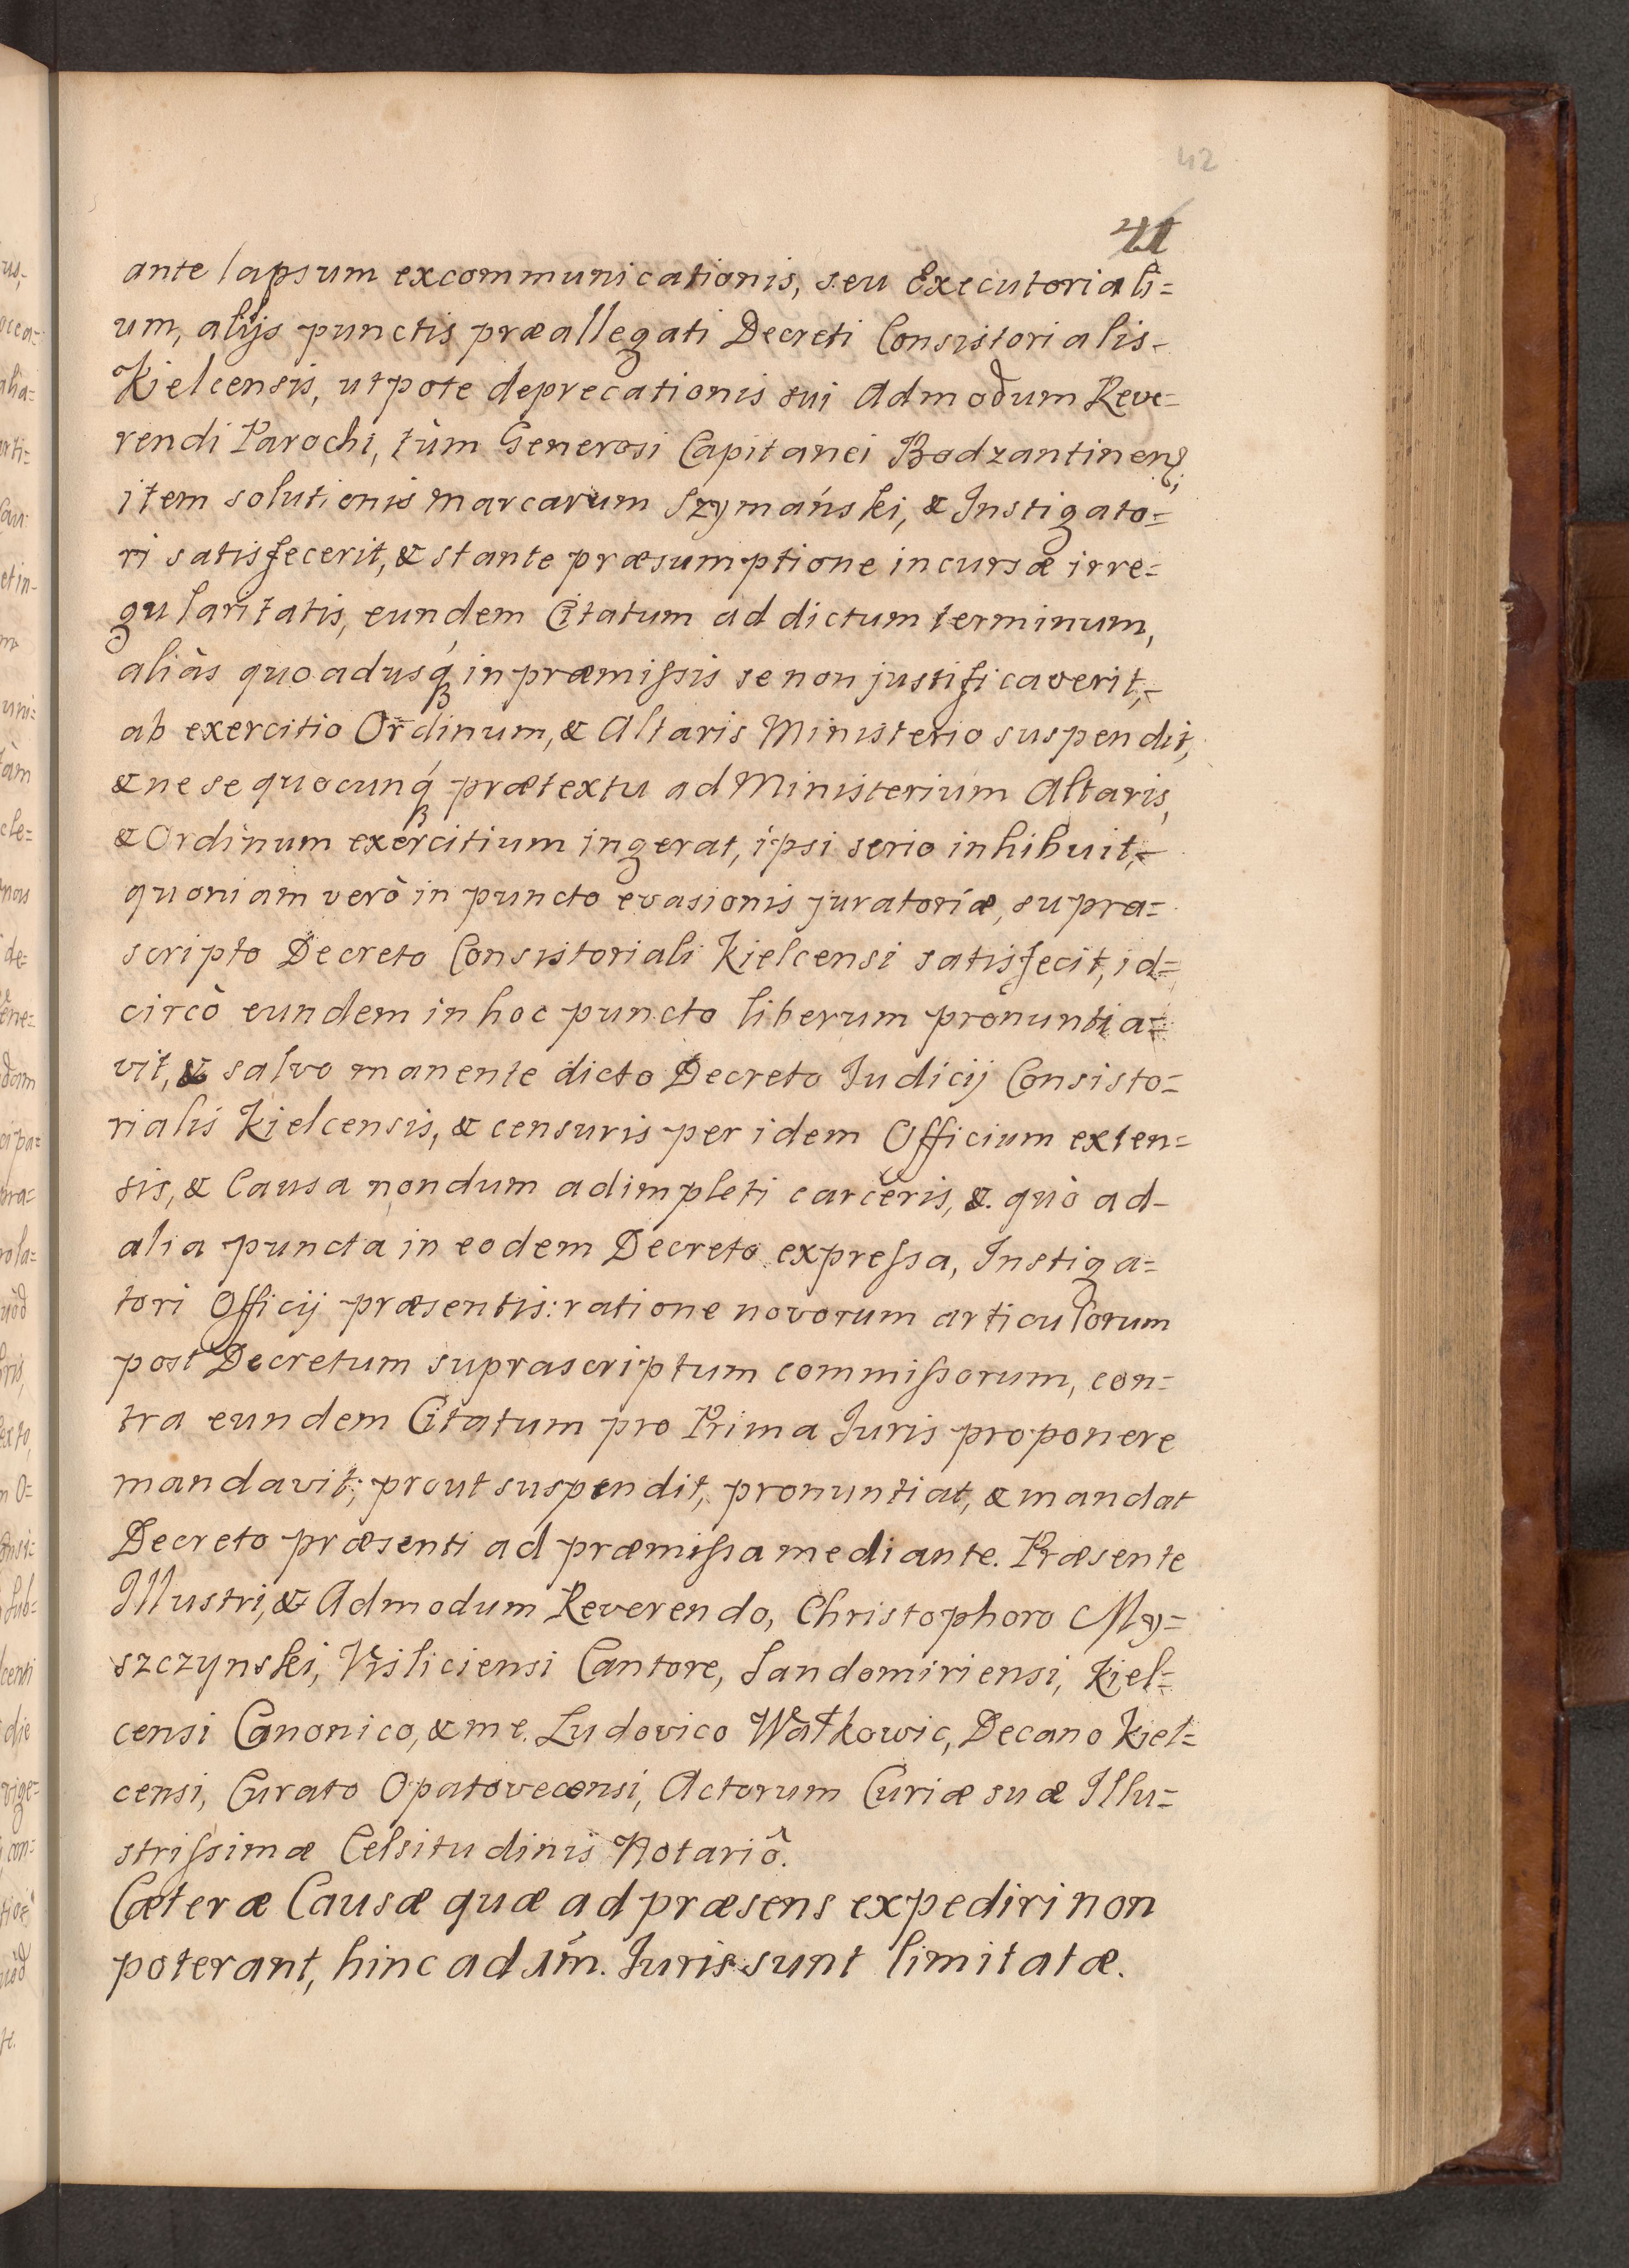 42
41
ante lapsum excommunicationis, seu Executoriali=
um, alijs punctis præallegati Decreti Consistorialis-
Kielcensis, utpote deprecationis sui Admodum Reve=
rendi Parochi, tùm Generosi Capitanei Bodzantinens,
item solutionis marcarum Szymański, & Instigato=
ri satisfecerit, & stante præsumptione incursæ irre=
gularitatis, eundem Citatum ad dictum terminum,
aliàs quoadusq́ in præmissis se non justificaverit,-
ab exercitio Ordinum, & Altaris Ministerio suspendit,
& ne se quocunq́ prætextu ad Ministerium Altaris,
& Ordinum exercitium ingerat, ipsi serio inhibuit,-
quoniam verò in puncto evasionis juratoriæ, supra=
scripto Decreto Consistoriali Kielcensi satisfecit, id=
circò eundem in hoc puncto liberum pronuntia=
vit, & salvo manente dicto Decreto Judicij Consisto=
rialis Kielcensis, & censuris per idem Officium exten=
sis, & Causa nondum adimpleti carceris, & quò ad-
alia puncta in eodem Decreto expressa, Instiga=
tori Officij præsentis: ratione novorum articulorum
post Decretum suprascriptum commissorum, con=
tra eundem Citatum pro Prima Juris proponere
mandavit; prout suspendit, pronuntiat, & mandat
Decreto præsenti ad præmissa mediante. Præsente
Illustri, & Admodum Reverendo, Christophoro My=
szczynski, Visliciensi Cantore, Sandomiriensi, Kiel=
censi Canonico, & me Ludovico Watkowic, Decano Kiel=
censi, Curato Opatovecensi, Actorum Curiæ suæ Illu=
strissimæ Celsitudinis Notariô.
Cæteræ Causæ quæ ad præsens expediri non
poterant, hinc ad 1ḿ. Juris sunt limitatæ.